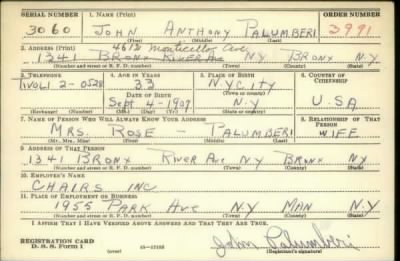 SERIAL NUMBER 1. NAME (Print) ORDER NUMBER
3060 JOHN ANTHONY PALUMBERI 3991
(First) (Middle) (Last)
2. ADDRESS (Print) 4612 Monticello Ave
1341 BRONX RIVER AVE NY BRONX N.Y.
(Number and street or R. F. D. number) (Town) (County) (State)
3. TELEPHONE 4. AGE IN YEARS 5. PLACE OF BIRTH 6. COUNTRY OF CITIZENSHIP
TIVOLI 2-0528 33 N.Y. CITY
DATE OF BIRTH (Town or county)
Sept 4-1907 N.Y U.S.A
(Exchange) (Number) (Mo.) (Day) (Yr.) (State or country)
7. NAME OF PERSON WHO WILL ALWAYS KNOW YOUR ADDRESS 8. RELATIONSHIP OF THAT PERSON
MRS. ROSE - PALUMBERI WIFE
(Mr., Mrs., Miss) (First) (Middle) (Last)
9. ADDRESS OF THAT PERSON
1341 BRONX RIVER AVE N.Y BRONX NY
(Number and street or R. F. D. number) (Town) (County) (State)
10. EMPLOYER'S NAME
CHAIRS INC
11. PLACE OF EMPLOYMENT OR BUSINESS
1955 PARK AVE N.Y MAN N.Y
(Number and street or R. F. D. number) (Town) (County) (State)
I AFFIRM THAT I HAVE VERIFIED ABOVE ANSWERS AND THAT THEY ARE TRUE.
REGISTRATION CARD
D. S. S. Form 1 (over) John Palumberi
(Registrant's signature)